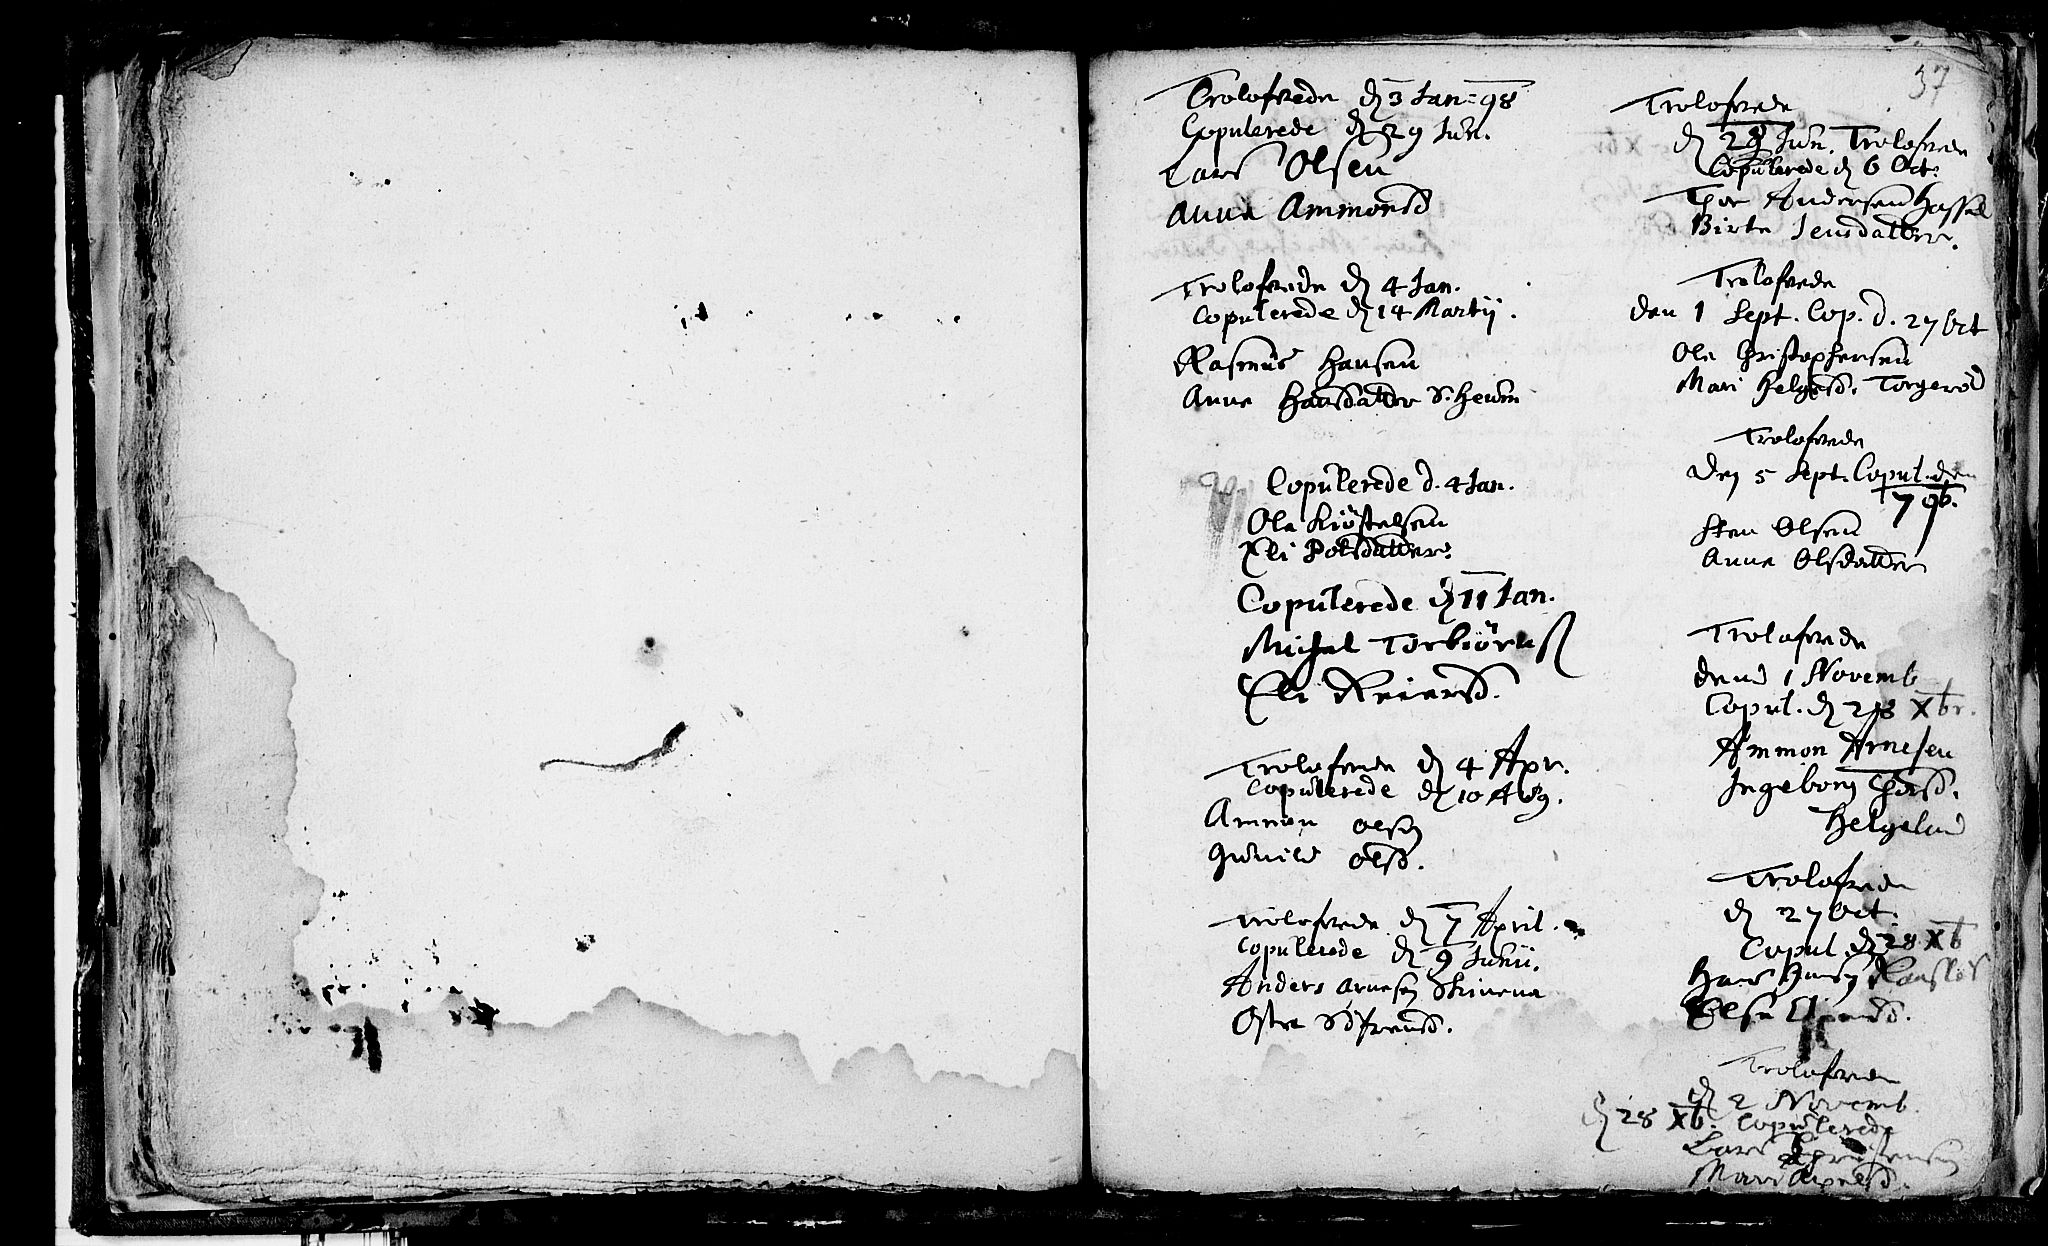 37
Trolofvede dn 3 Jan: 98
Copulerede dn 29 Jun.
Lars Olsen
Anna Ammonsd
Trolofvede dn 4 Jan.
Copulerede dn 14 Martij.
Rasmus Hansen
Anne Hansdatter
Copulerede d. 4 Jan.
Ole Kiöstelsen
Eli Polsdatter.
Copulerede dn 11 Jan.
Michel Torbiörns
Eli Reiersd.
Trolofvede dn 4 Apr.
Copulerede dn 10 Aug.
Ammon Olsen
Gunild Olsd.
Trolofvede dn 7 April.
Copulerede dn 9 Junij.
Anders Arnesen
Trolofvede
dn 28 Jun. Trolofvede
Copulerede dn 6 Oct.
Thor Andersen Hassel
Birte Jensdatter.
Trolofvede
den 1 Sept. Cop. d. 27 Oct
Ole Christophersen
Mari Helgesd. Torgerød
Trolofvede
den 5 Sept. Copul. den
7 9b.
Sten Olsen
Anne Olsdatter
Trolofvede
dend 1 Novemb
Copul. dn 28 Xbr.
Ammon Arnesen
Ingeborg Thorsd.
Helgeland
Trolofvede
dn 27 Oct.
Copul dn 28 Xb
Hans Hansen
Else
Trolofvede
dn 2 Novemb.
dn 28 Xb. Copulerede
Lars
Mari